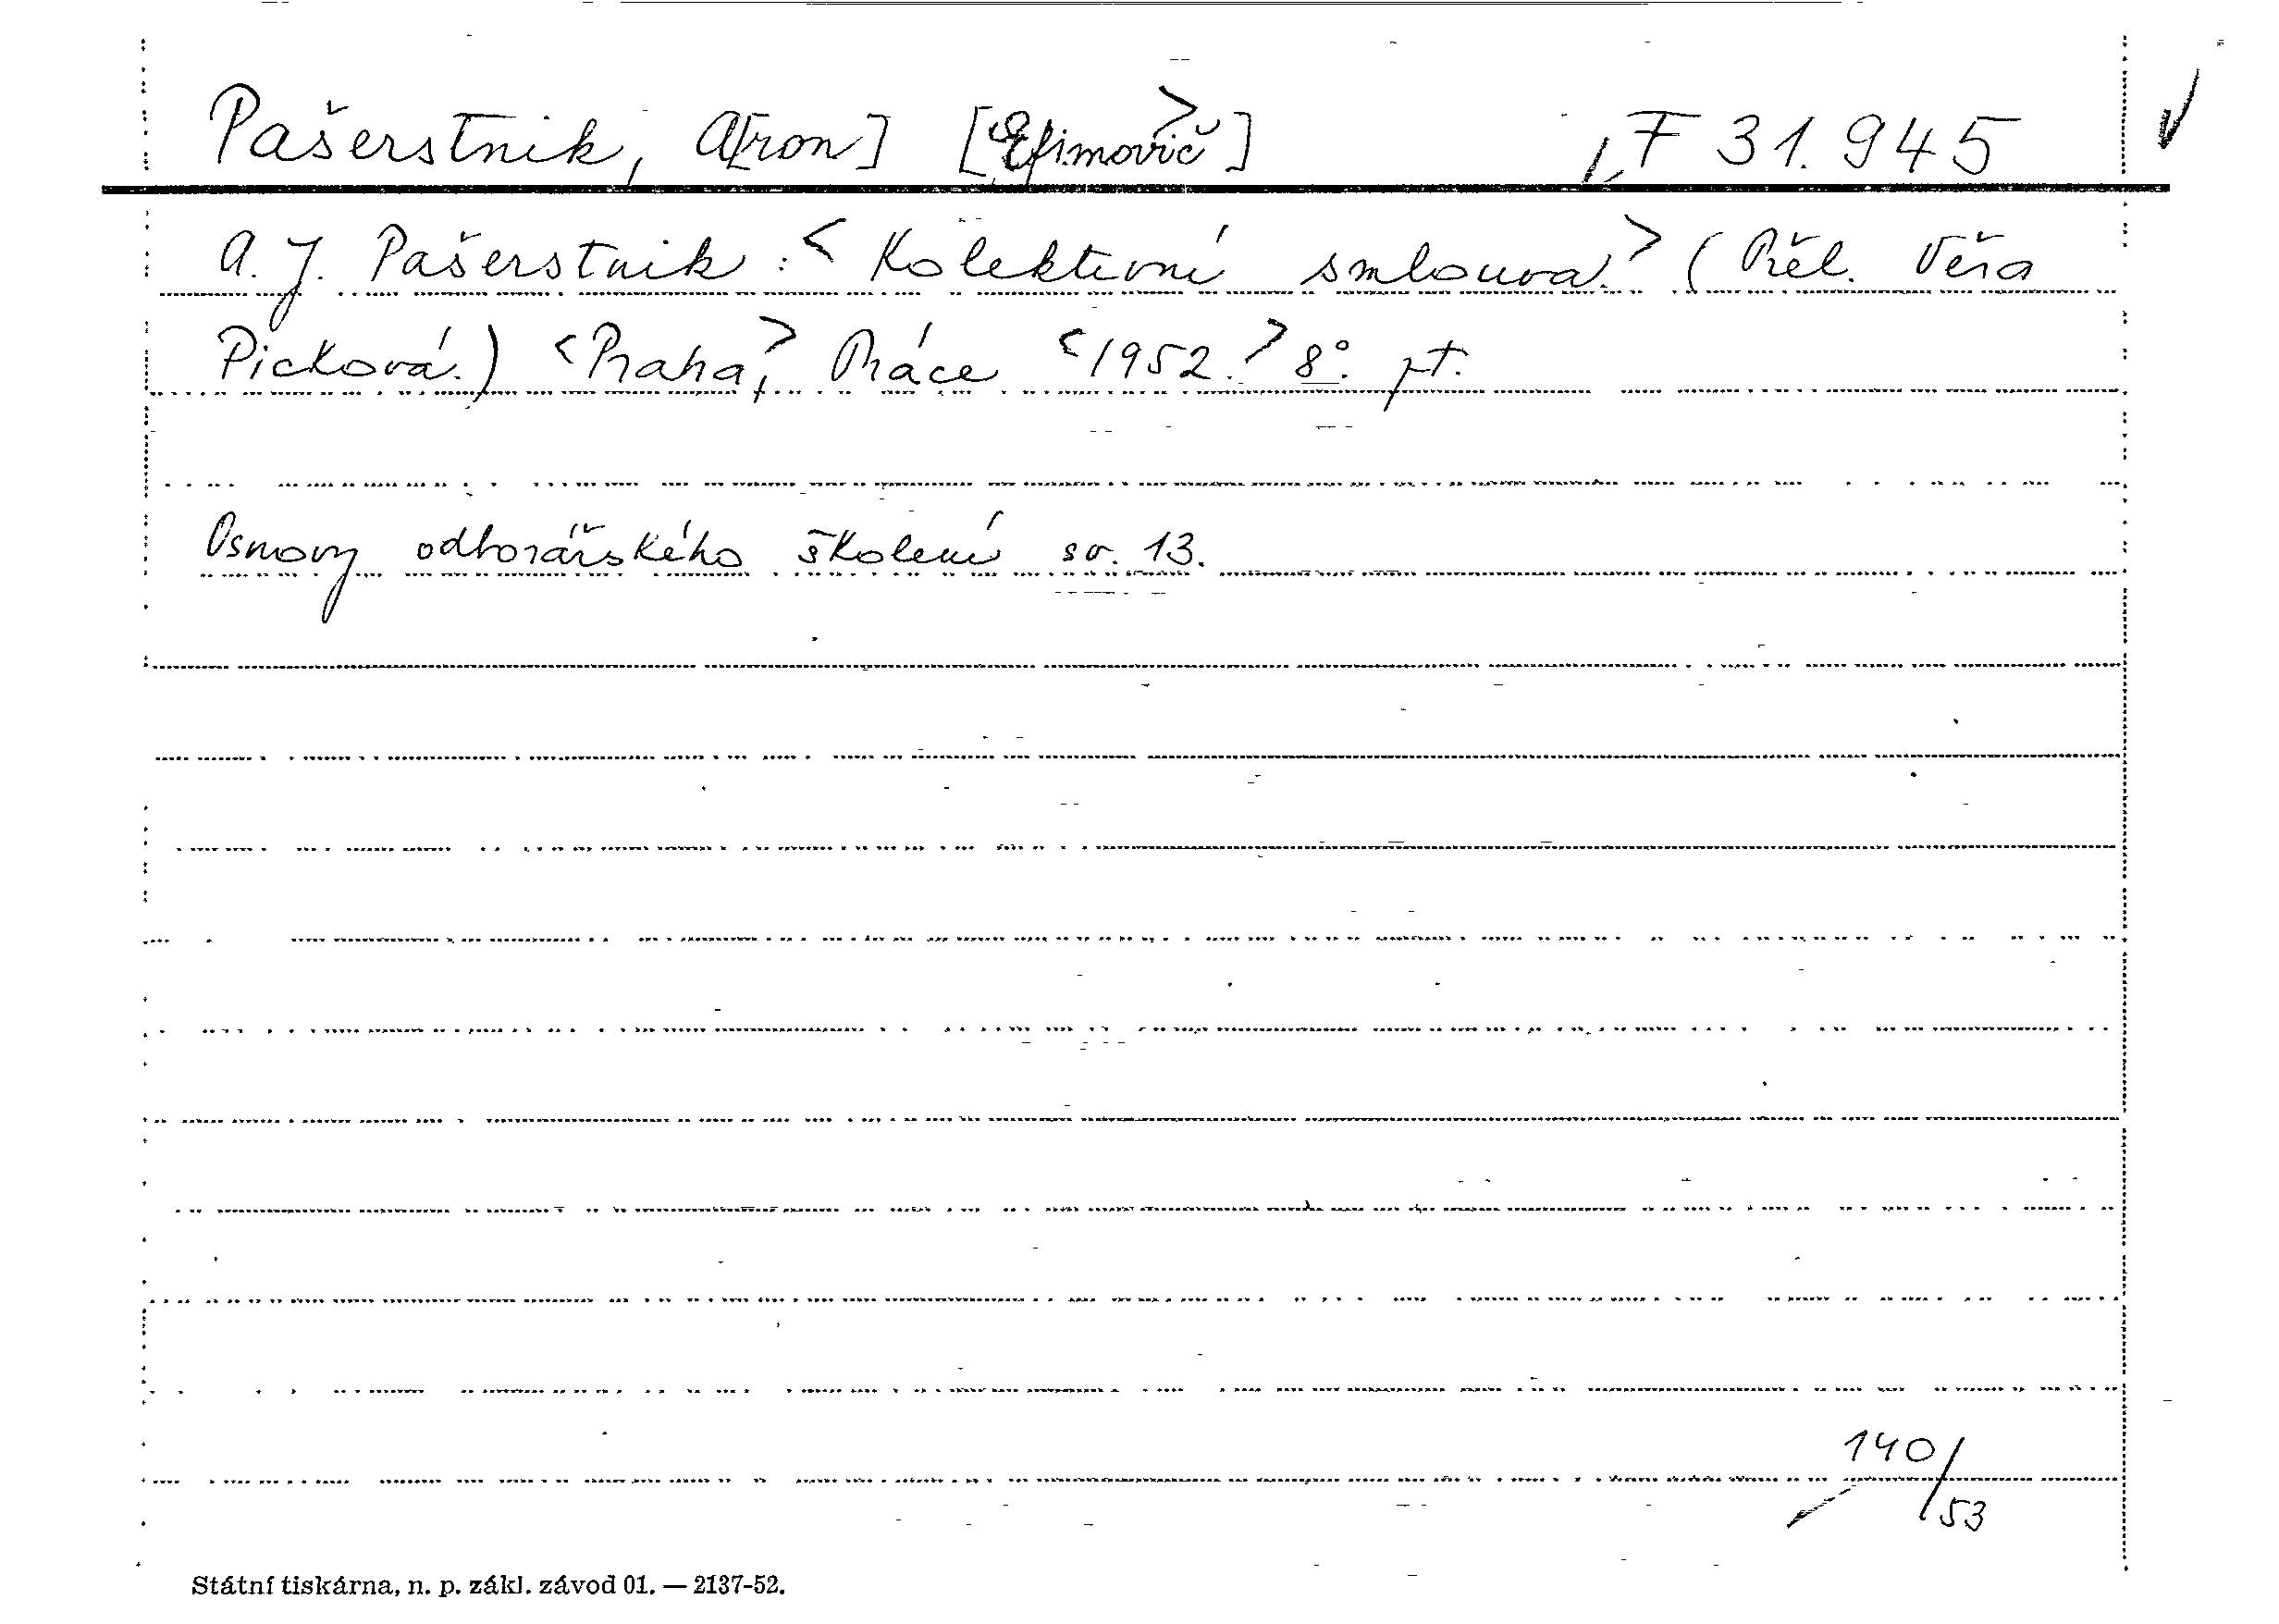 Pašerstnik, A[ron] [Efimovič>] F 31.945
A. J. Pašerstnik: <Kolektivní smlouva.> (Přel. Věra
Picková.) <Praha,> Práce <1952.> 8°. pt.
Osnovy odborářského školení sv. 13.
140/53
Státní tiskárna, n. p. zákl. závod 01. — 2137-52.